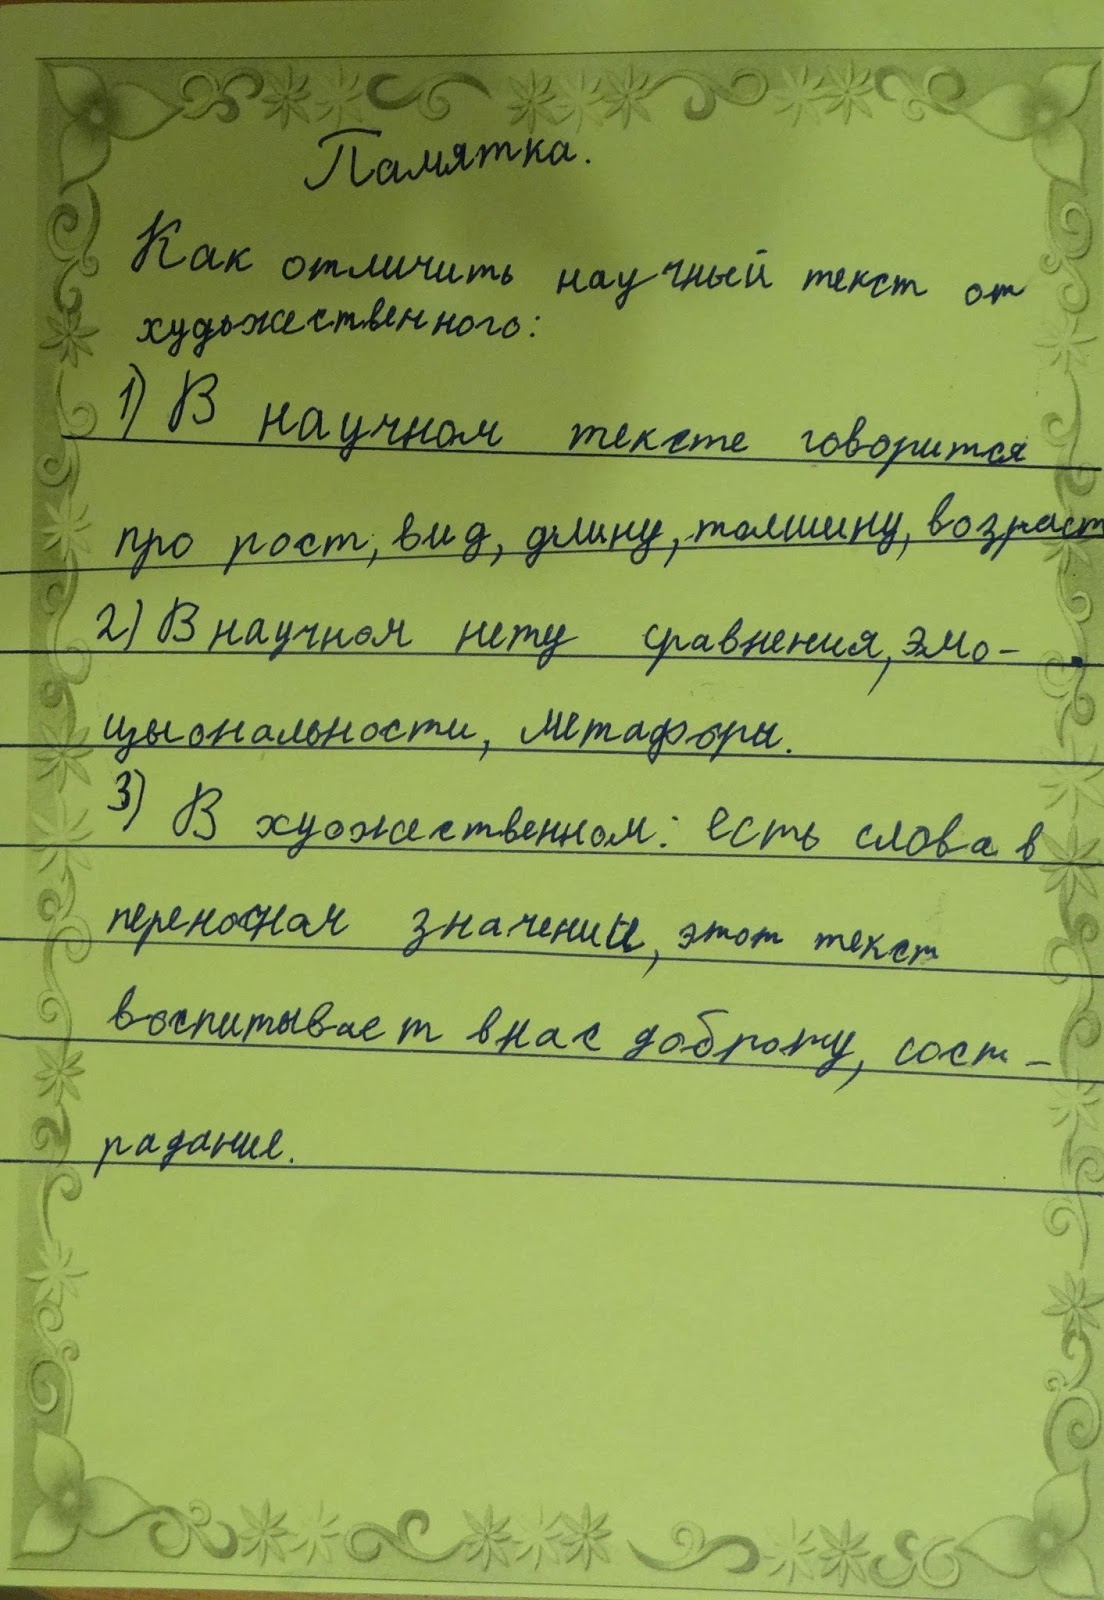 Памятка.
Как отличить научный текст от
художественного:
1) В научном тексте говорится
про рост, вид, длину, толшину, возраст
2) В научном нету сравнения, эмо-
цыональности, метафоры.
3) В хуожественном: есть слова в
переносном значении, этот текст
воспитывает внас доброту, сост-
радание.